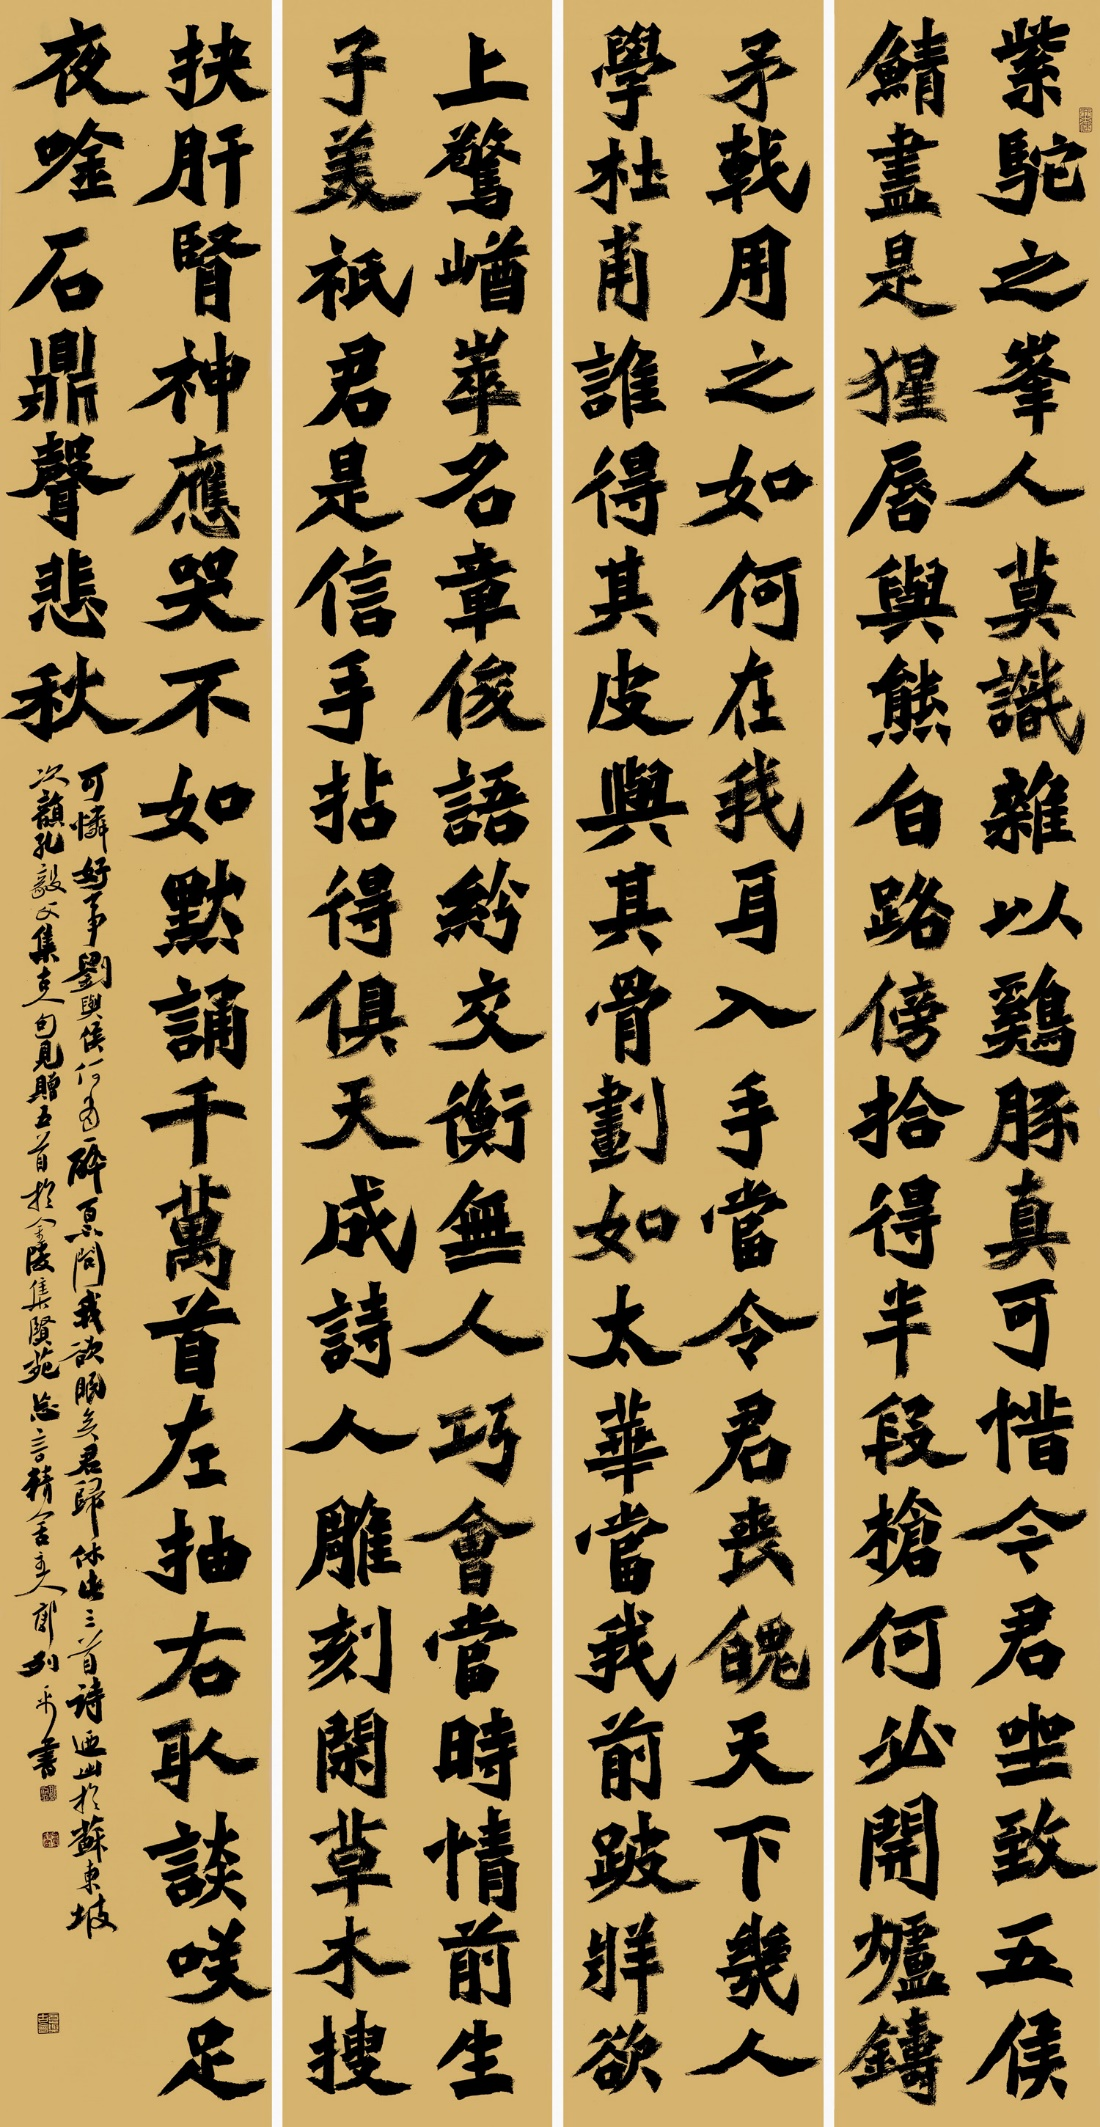 紫駝之峯人莫識雜以鷄豚真可惜今君坐致五侯
鯖盡是猩唇與熊白路傍拾得半段槍何必開爐鑄
矛戟用之如何在我耳入手當令君喪魄天下幾人
學杜甫誰得其皮與其骨劃如太華當我前跛牂欲
上驚崷崒名章俊語紛交衡無人巧會當時情前生
子美衹君是信手拈得俱天成詩人雕刻閑草木搜
抉肝腎神應哭不如默誦千萬首左抽右取談咲足
夜唫石鼎聲悲秋
可憐好事劉與侯何當一醉百不問我欲眠矣君歸休此三首詩迺出於蘇東坡
次韻孔毅父集古人句見贈五首於金陵集賢苑慈言精舍主人郭列平書